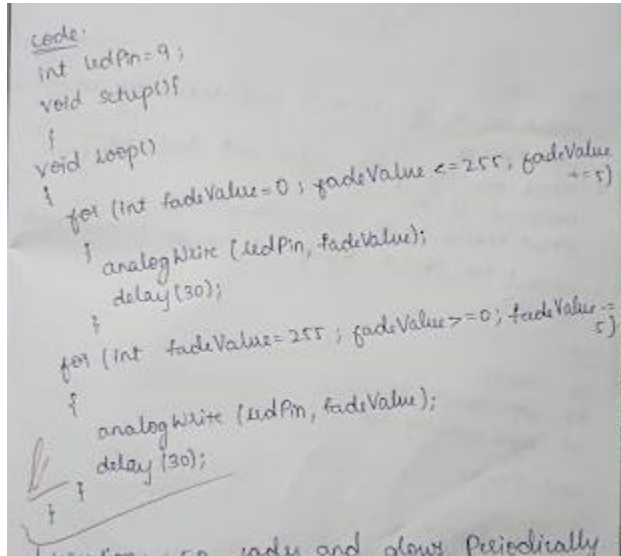 code.
int ledPin=9;
void setup(){
}
void loop()
{
for (int fadeValue=0; fadeValue <=255; fadeValue
+=5)
{
analogWrite (ledPin, fadeValue);
delay(30);
}
for (int fadeValue=255; fadeValue>=0; fadeValue-=
5)
{
analogWrite (ledPin, fadeValue);
delay(30);
}
}
and glows Periodically